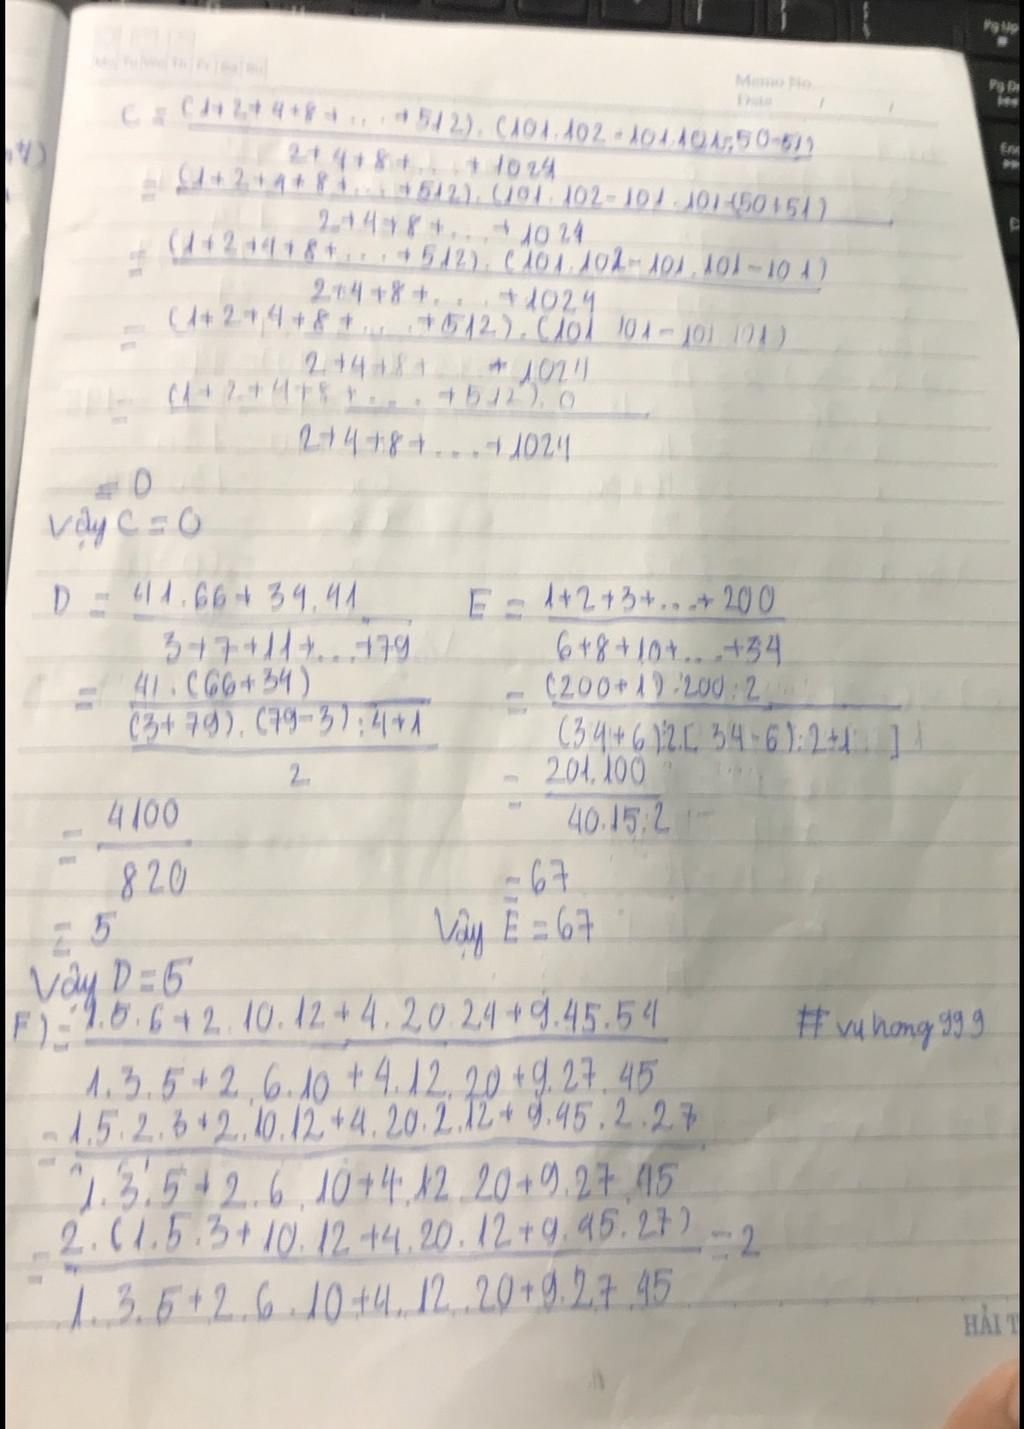 Memo No.
Date / /
C = (1+2+4+8+...+512).(101.102-101.101-50-51)
2+4+8+...+1024
= (1+2+4+8+...+512).(101.102-101.101-(50+51)
2+4+8+...+1024
= (1+2+4+8+...+512).(101.102-101.101-101)
2+4+8+...+1024
= (1+2+4+8+...+512).(101 101-101 101)
2+4+8+...+1024
= (1+2+4+8+...+512).0
2+4+8+...+1024
= 0
Vậy C = 0
D = 41.66+34.41
3+7+11+...+79
= 41.(66+34)
(3+79).(79-3):4+1
2
= 4100
820
= 5
Vậy D=5
E = 1+2+3+...+200
6+8+10+...+34
= (200+1).200:2
(34+6):2.[34-6):2+1]
= 201.100
40.15:2
=67
Vậy E =67
F)= 1.5.6+2.10.12+4.20.24+9.45.54
1.3.5+2.6.10+4.12.20+9.27.45
= 1.5.2.3+2.10.12+4.20.2.12+9.45.2.27
1.3.5+2.6.10+4.12.20+9.27.45
= 2.(1.5.3+10.12+4.20.12+9.45.27) =2
1.3.5+2.6.10+4.12.20+9.27.45
# vuhong999
HẢI T
Pg Up